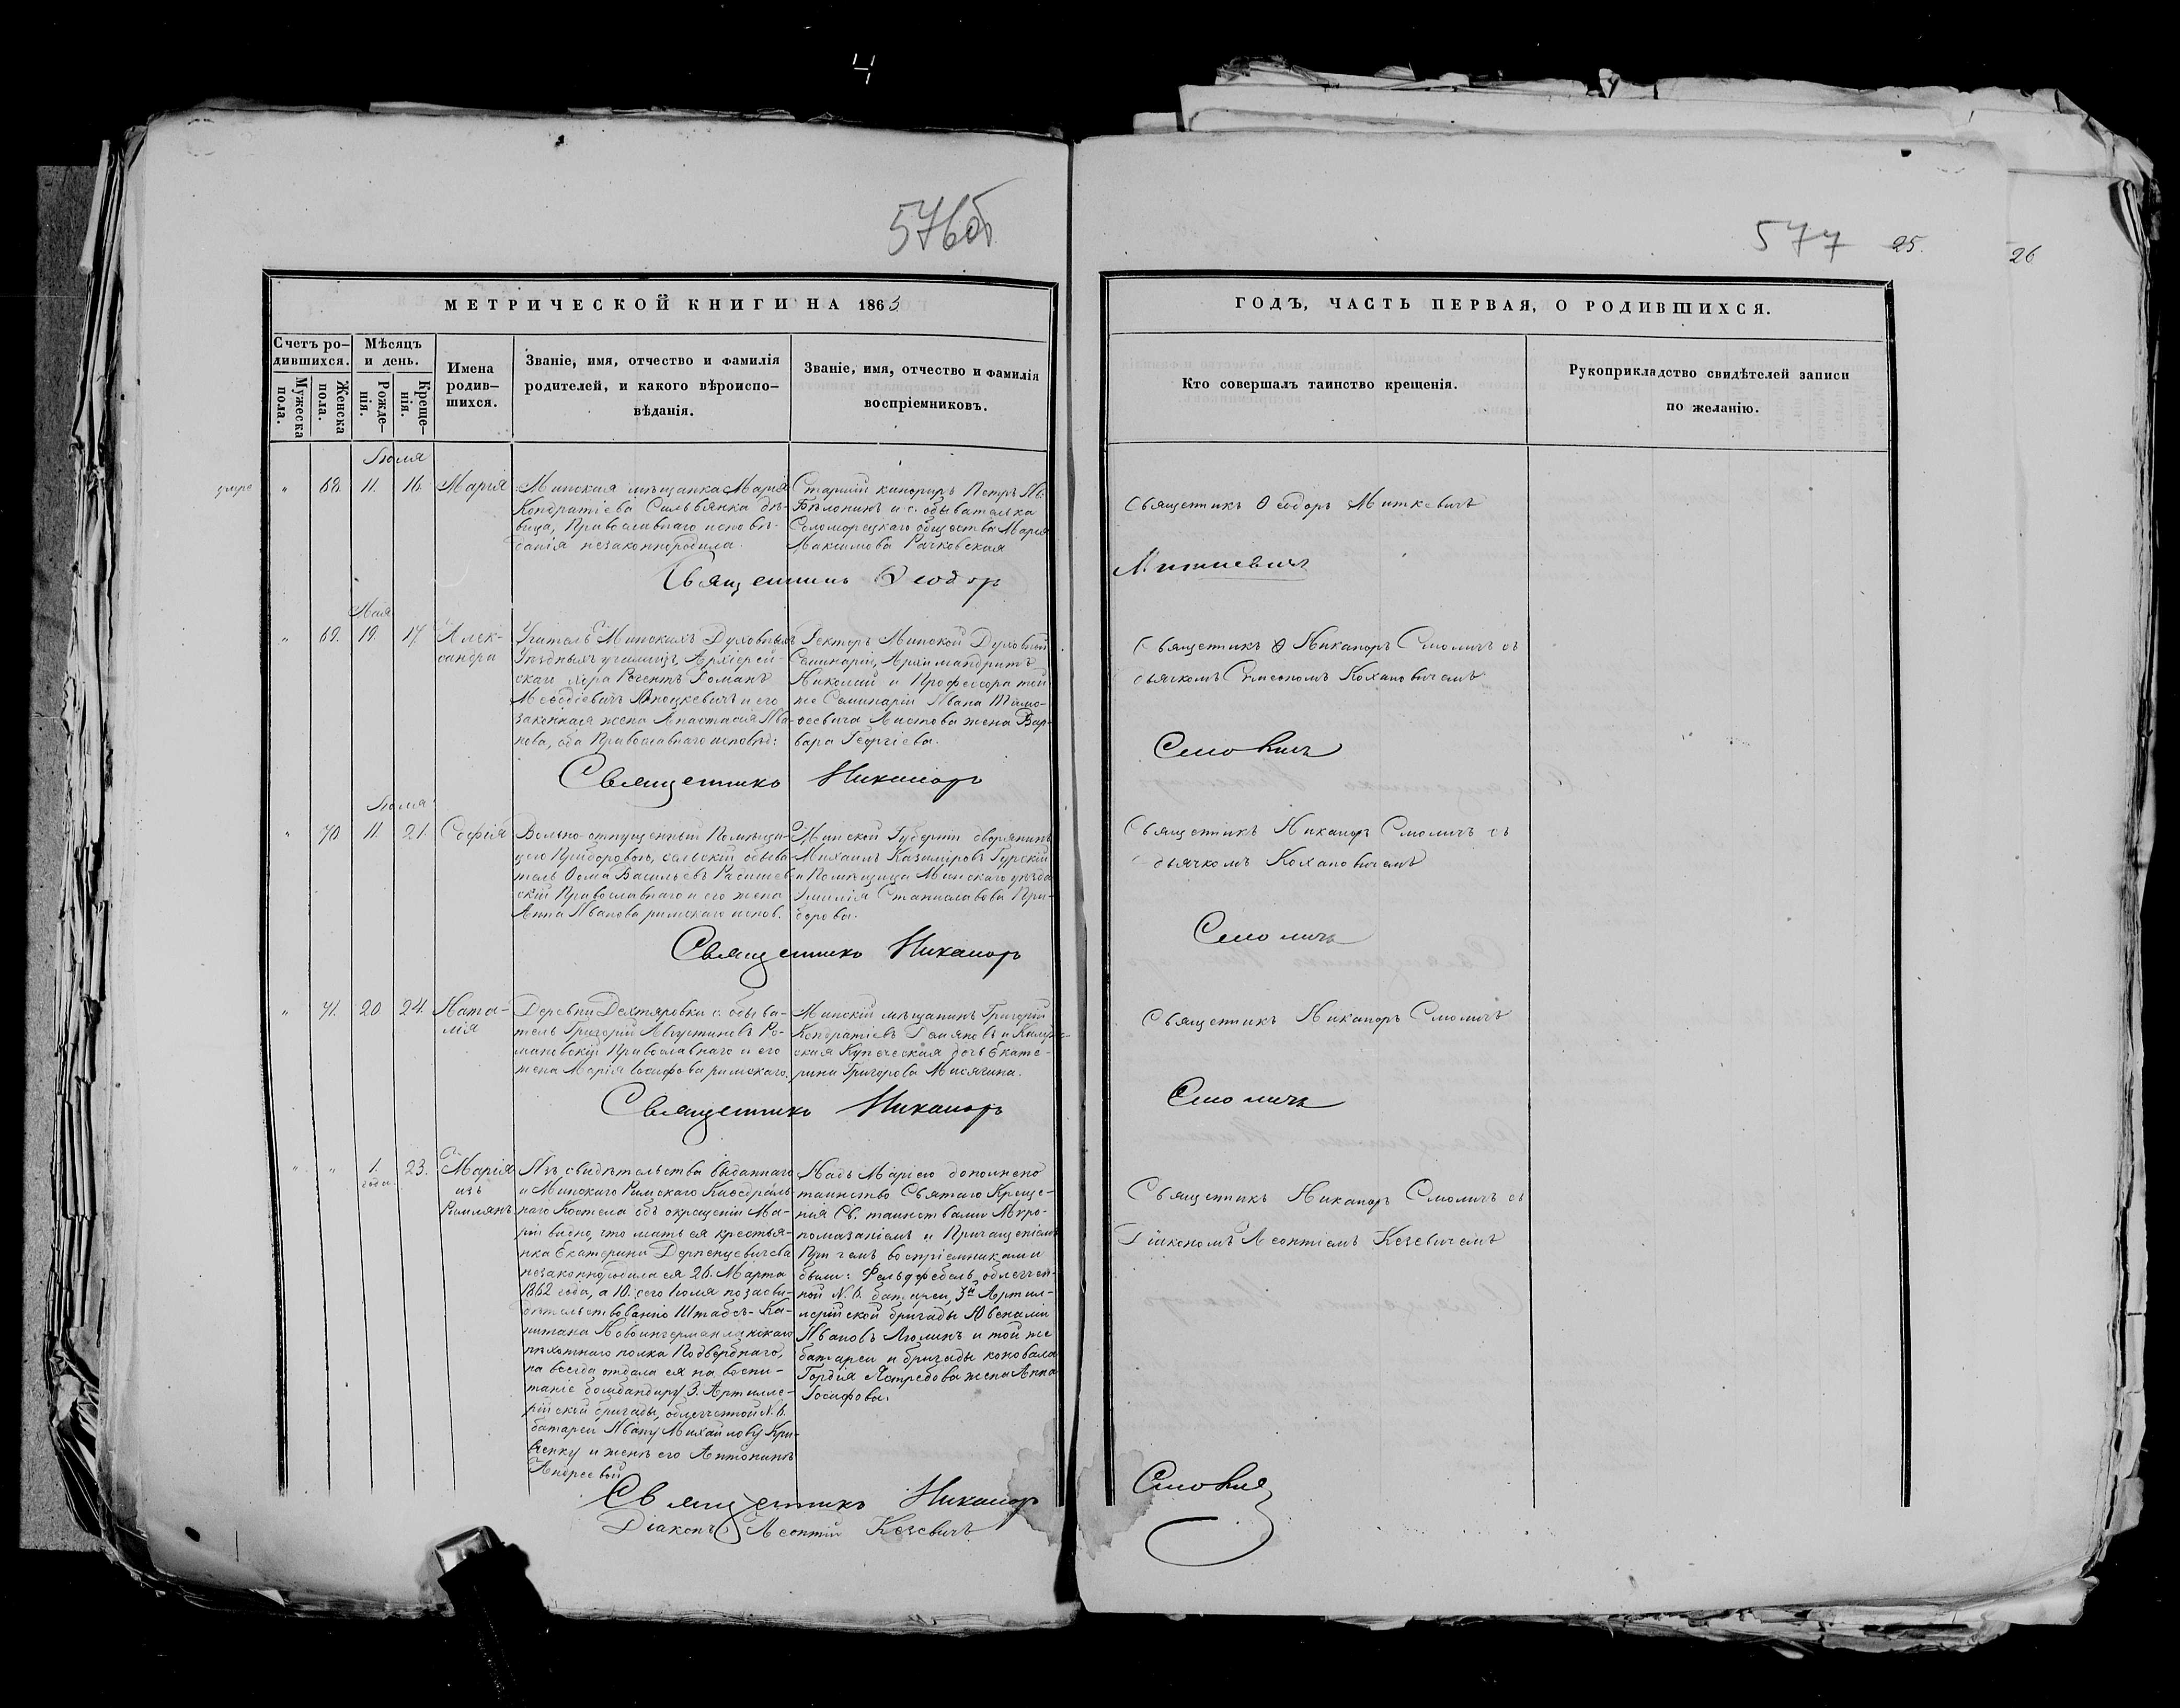 4
576об
577
25.
26
МЕТРИЧЕСКОЙ КНИГИ НА 1863
ГОДЪ, ЧАСТЬ ПЕРВАЯ, О РОДИВШИХСЯ.
Счетъ ро-
дившихся.
Мужеска
пола.
Женска
пола.
Мѣсяцъ
и день.
Рожде-
нія.
Креще-
нія.
Имена
родив-
шихся.
Званіе, имя, отчество и фамилія
родителей, и какого вѣроиспо-
вѣданія.
Званіе, имя, отчество и фамилія
воспріемниковъ.
Кто совершалъ таинство крещенія.
Рукоприкладство свидѣтелей записи
по желанію.
Іюля
" 68. 11. 16. Марія
Минская мѣщанка Марія
Кондратіева Сильвянка дѣ-
вица, Православнаго исповѣ-
данія незаконнородила.
Старшій канониръ Петръ Ив.
Бѣлонинъ и с. обывателка
Соломорецкаго общества Марія
Максимова Рачковская
Священникъ Ѳеодоръ Миткевичъ
Священникъ Ѳеодоръ
Миткевичъ
Мая
" 69. 19. 17. Алек-
сандра
Учитель Минскихъ Духовныхъ
Уѣздныхъ училищъ, Архіерей-
скаго хора Регентъ Романъ
Меѳодіевичъ и его
законная жена Анастасія Ива-
нова, оба Православнаго исповѣд:
Ректоръ Минской Духовной
Семинаріи, Архимандритъ
Николай и Профессора той
же Семинаріи Ивана Тимо-
ѳеевича Листова жена Вар-
вара Георгіева.
Священникъ Никаноръ Смоличъ съ
дьячкомъ Симеономъ Кохановичемъ
Священникъ Никаноръ
Смоличъ
Іюля
" 70 11. 21. Софія
Вольно-отпущенный Помѣщи-
цею Приборовою, сельскій обыва-
тель Ѳома Васильевъ Радишев-
скій Православнаго и его жена
Анна Иванова римскаго испов.
Минской Губерніи дворянинъ
Михаилъ Казиміровъ Гурскій
и Помѣщица Минскаго уѣзда
Эмилія Станиславова При-
борова.
Священникъ Никаноръ Смоличъ съ
дьячкомъ Кохановичемъ
Священникъ Никаноръ
Смоличъ
" 71. 20 24. Ната-
лія
Деревни Дехтяровки с. обыва-
тель Григорій Августиновъ Ро-
мановскій Православнаго и его
жена Марія Іосифова римскаго.
Минскій мѣщанинъ Григорій
Кондратіевъ Демяновъ и
Купеческая дочь Екате-
рина Григорова Мисягина.
Священникъ Никаноръ Смоличъ
Священникъ Никаноръ
Смоличъ
" " 1. 23. Марія
года. изъ
Римлянъ
Изъ свидѣтельства выданнаго
и Минскаго Римскаго Каѳедраль-
наго Костела объ окрещеніи Ма-
ріи видно, что мать ея крестья-
нка Екатерина
незаконнородила ея 26. Марта
1862 года, а 10. сего Іюля по засви-
дѣтельствованію Штабсъ-Ка-
питана Новоингерманландскаго
пѣхотнаго полка Подвербнаго,
на всегда отдала ея на воспи-
таніе бомбандиру 3. Артилле-
рійской бригады, облегченной N. 6.
батареи Ивану Михайлову Кри-
венку и женѣ его Антонинѣ
Андреевой
Надъ Маріею дополнено
таинство Святаго Креще-
нія Св. таинствами Мѵро-
помазаніемъ и Причащеніемъ
При чемъ воспріемниками
были: Фельдфебель облегчен-
ной N. 6. батареи, 3й Артил-
лерійской бригады Ювеналій
Ивановъ Люминъ и той же
батареи и бригады коновала
Гордія Ястребова жена Анна
Іосифова.
Священникъ Никаноръ Смоличъ съ
Діякономъ Леонтіемъ Кезевичемъ
Священникъ Никаноръ
Смоличъ
Діаконъ Леонтій Кезевичъ